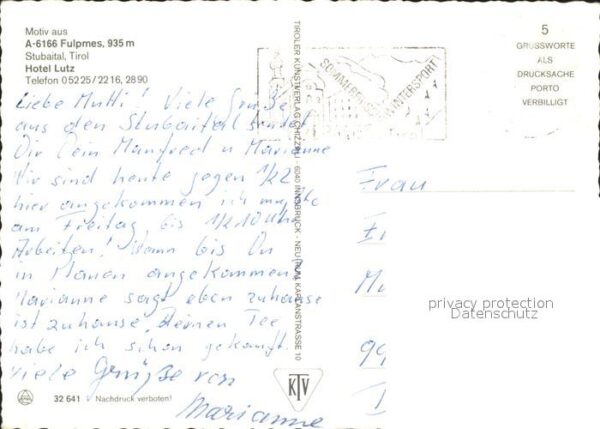 Motiv aus
A-6166 Fulpmes, 935 m
Stubaital, Tirol
Hotel Lutz
Telefon 0 52 25 / 22 16, 28 90
Liebe Mutti! Viele Grüße
aus den Stubaital sendet
Dir Dein Manfred u Marianne
Wir sind heute gegen 1/2
hier angekommen ich mußte
am Freitag bis 1/2 10 Uhr
Arbeiten! Wann bis Du
in angekommen
Marianne sagt eben zuhause
ist zuhause, Deinen Tee
habe ich schon gekauft.
Viele Grüße von
Marianne
32 641 Nachdruck verboten!
TIROLER KUNSTVERLAG CHIZZALI · 6040 INNSBRUCK - NEU-RUM, KAPLANSTRASSE 10
KTV
SOMMERFRISCHE WINTERSPORT
5
GRUSSWORTE
ALS
DRUCKSACHE
PORTO
VERBILLIGT
Frau
privacy protection
Datenschutz